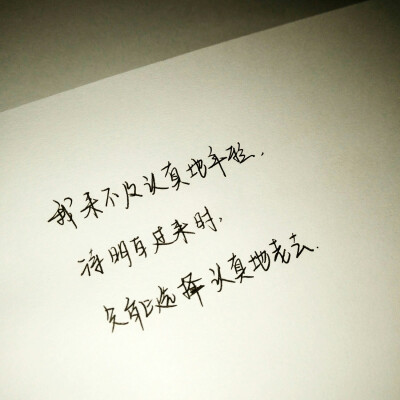 我来不及认真地年轻,
待明白过来时,
只能选择认真地老去.